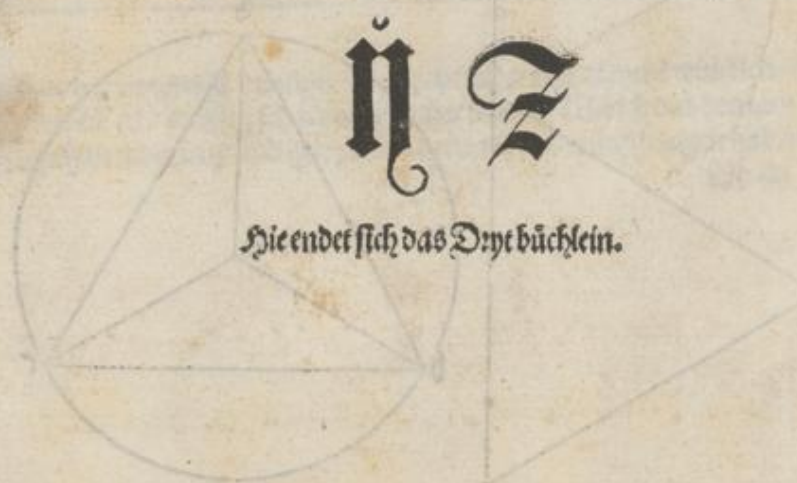 ÿ Z
Hie endet sich das Dryt büchlein.